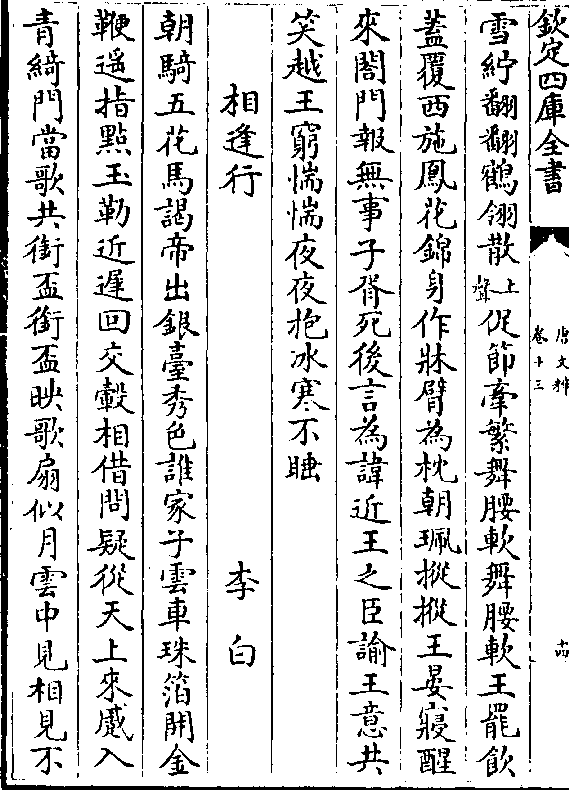 欽定四庫全書
唐文粹
卷十三
十四
雪紵翻翻鶴翎散上聲促節牽繁舞腰軟舞腰軟王罷飲
蓋覆西施鳳花錦身作牀臂為枕朝珮摐摐王晏寢醒
來閤門報無事子胥死後言為諱近王之臣諭王意共
笑越王窮惴惴夜夜抱冰寒不睡
相逢行 李白
朝騎五花馬謁帝出銀臺秀色誰家子雲車珠箔開金
鞭遥指㸃玉勒近遲回交轂相借問疑從天上來蹙入
青綺門當歌共銜盃銜盃映歌扇似月雲中見相見不